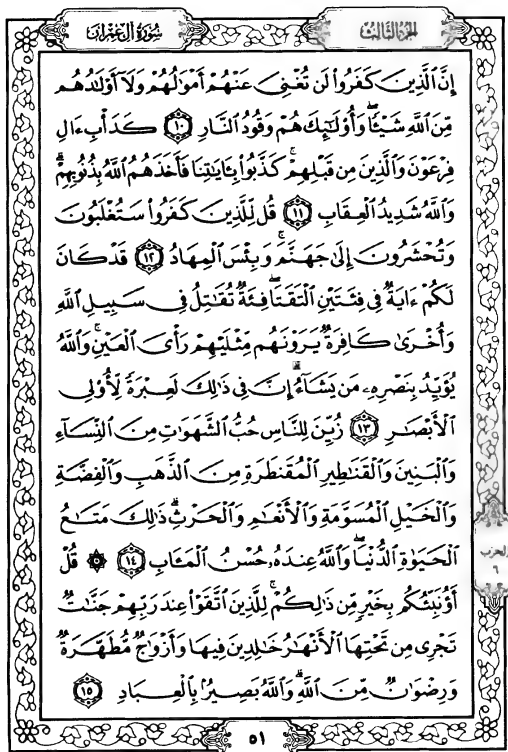 سُورَةُ آلِ عِمْرَانَ
الجُزْءُ الثَّالِثُ
إِنَّ ٱلَّذِينَ كَفَرُوا۟ لَن تُغْنِىَ عَنْهُمْ أَمْوَٰلُهُمْ وَلَآ أَوْلَـٰدُهُم
مِّنَ ٱللَّهِ شَيْـًٔا ۖ وَأُو۟لَـٰٓئِكَ هُمْ وَقُودُ ٱلنَّارِ ١٠ كَدَأْبِ ءَالِ
فِرْعَوْنَ وَٱلَّذِينَ مِن قَبْلِهِمْ ۚ كَذَّبُوا۟ بِـَٔايَـٰتِنَا فَأَخَذَهُمُ ٱللَّهُ بِذُنُوبِهِمْ ۗ
وَٱللَّهُ شَدِيدُ ٱلْعِقَابِ ١١ قُل لِّلَّذِينَ كَفَرُوا۟ سَتُغْلَبُونَ
وَتُحْشَرُونَ إِلَىٰ جَهَنَّمَ ۚ وَبِئْسَ ٱلْمِهَادُ ١٢ قَدْ كَانَ
لَكُمْ ءَايَةٌ فِى فِئَتَيْنِ ٱلْتَقَتَا ۖ فِئَةٌ تُقَـٰتِلُ فِى سَبِيلِ ٱللَّهِ
وَأُخْرَىٰ كَافِرَةٌ يَرَوْنَهُم مِّثْلَيْهِمْ رَأْىَ ٱلْعَيْنِ ۚ وَٱللَّهُ
يُؤَيِّدُ بِنَصْرِهِۦ مَن يَشَآءُ ۗ إِنَّ فِى ذَٰلِكَ لَعِبْرَةً لِّأُو۟لِى
ٱلْأَبْصَـٰرِ ١٣ زُيِّنَ لِلنَّاسِ حُبُّ ٱلشَّهَوَٰتِ مِنَ ٱلنِّسَآءِ
وَٱلْبَنِينَ وَٱلْقَنَـٰطِيرِ ٱلْمُقَنطَرَةِ مِنَ ٱلذَّهَبِ وَٱلْفِضَّةِ
وَٱلْخَيْلِ ٱلْمُسَوَّمَةِ وَٱلْأَنْعَـٰمِ وَٱلْحَرْثِ ۗ ذَٰلِكَ مَتَـٰعُ
ٱلْحَيَوٰةِ ٱلدُّنْيَا ۖ وَٱللَّهُ عِندَهُۥ حُسْنُ ٱلْمَـَٔابِ ١٤ ۞ قُلْ
الحزب
٦
أَؤُنَبِّئُكُم بِخَيْرٍ مِّن ذَٰلِكُمْ ۚ لِلَّذِينَ ٱتَّقَوْا۟ عِندَ رَبِّهِمْ جَنَّـٰتٌ
تَجْرِى مِن تَحْتِهَا ٱلْأَنْهَـٰرُ خَـٰلِدِينَ فِيهَا وَأَزْوَٰجٌ مُّطَهَّرَةٌ
وَرِضْوَٰنٌ مِّنَ ٱللَّهِ ۗ وَٱللَّهُ بَصِيرٌۢ بِٱلْعِبَادِ ١٥
٥١